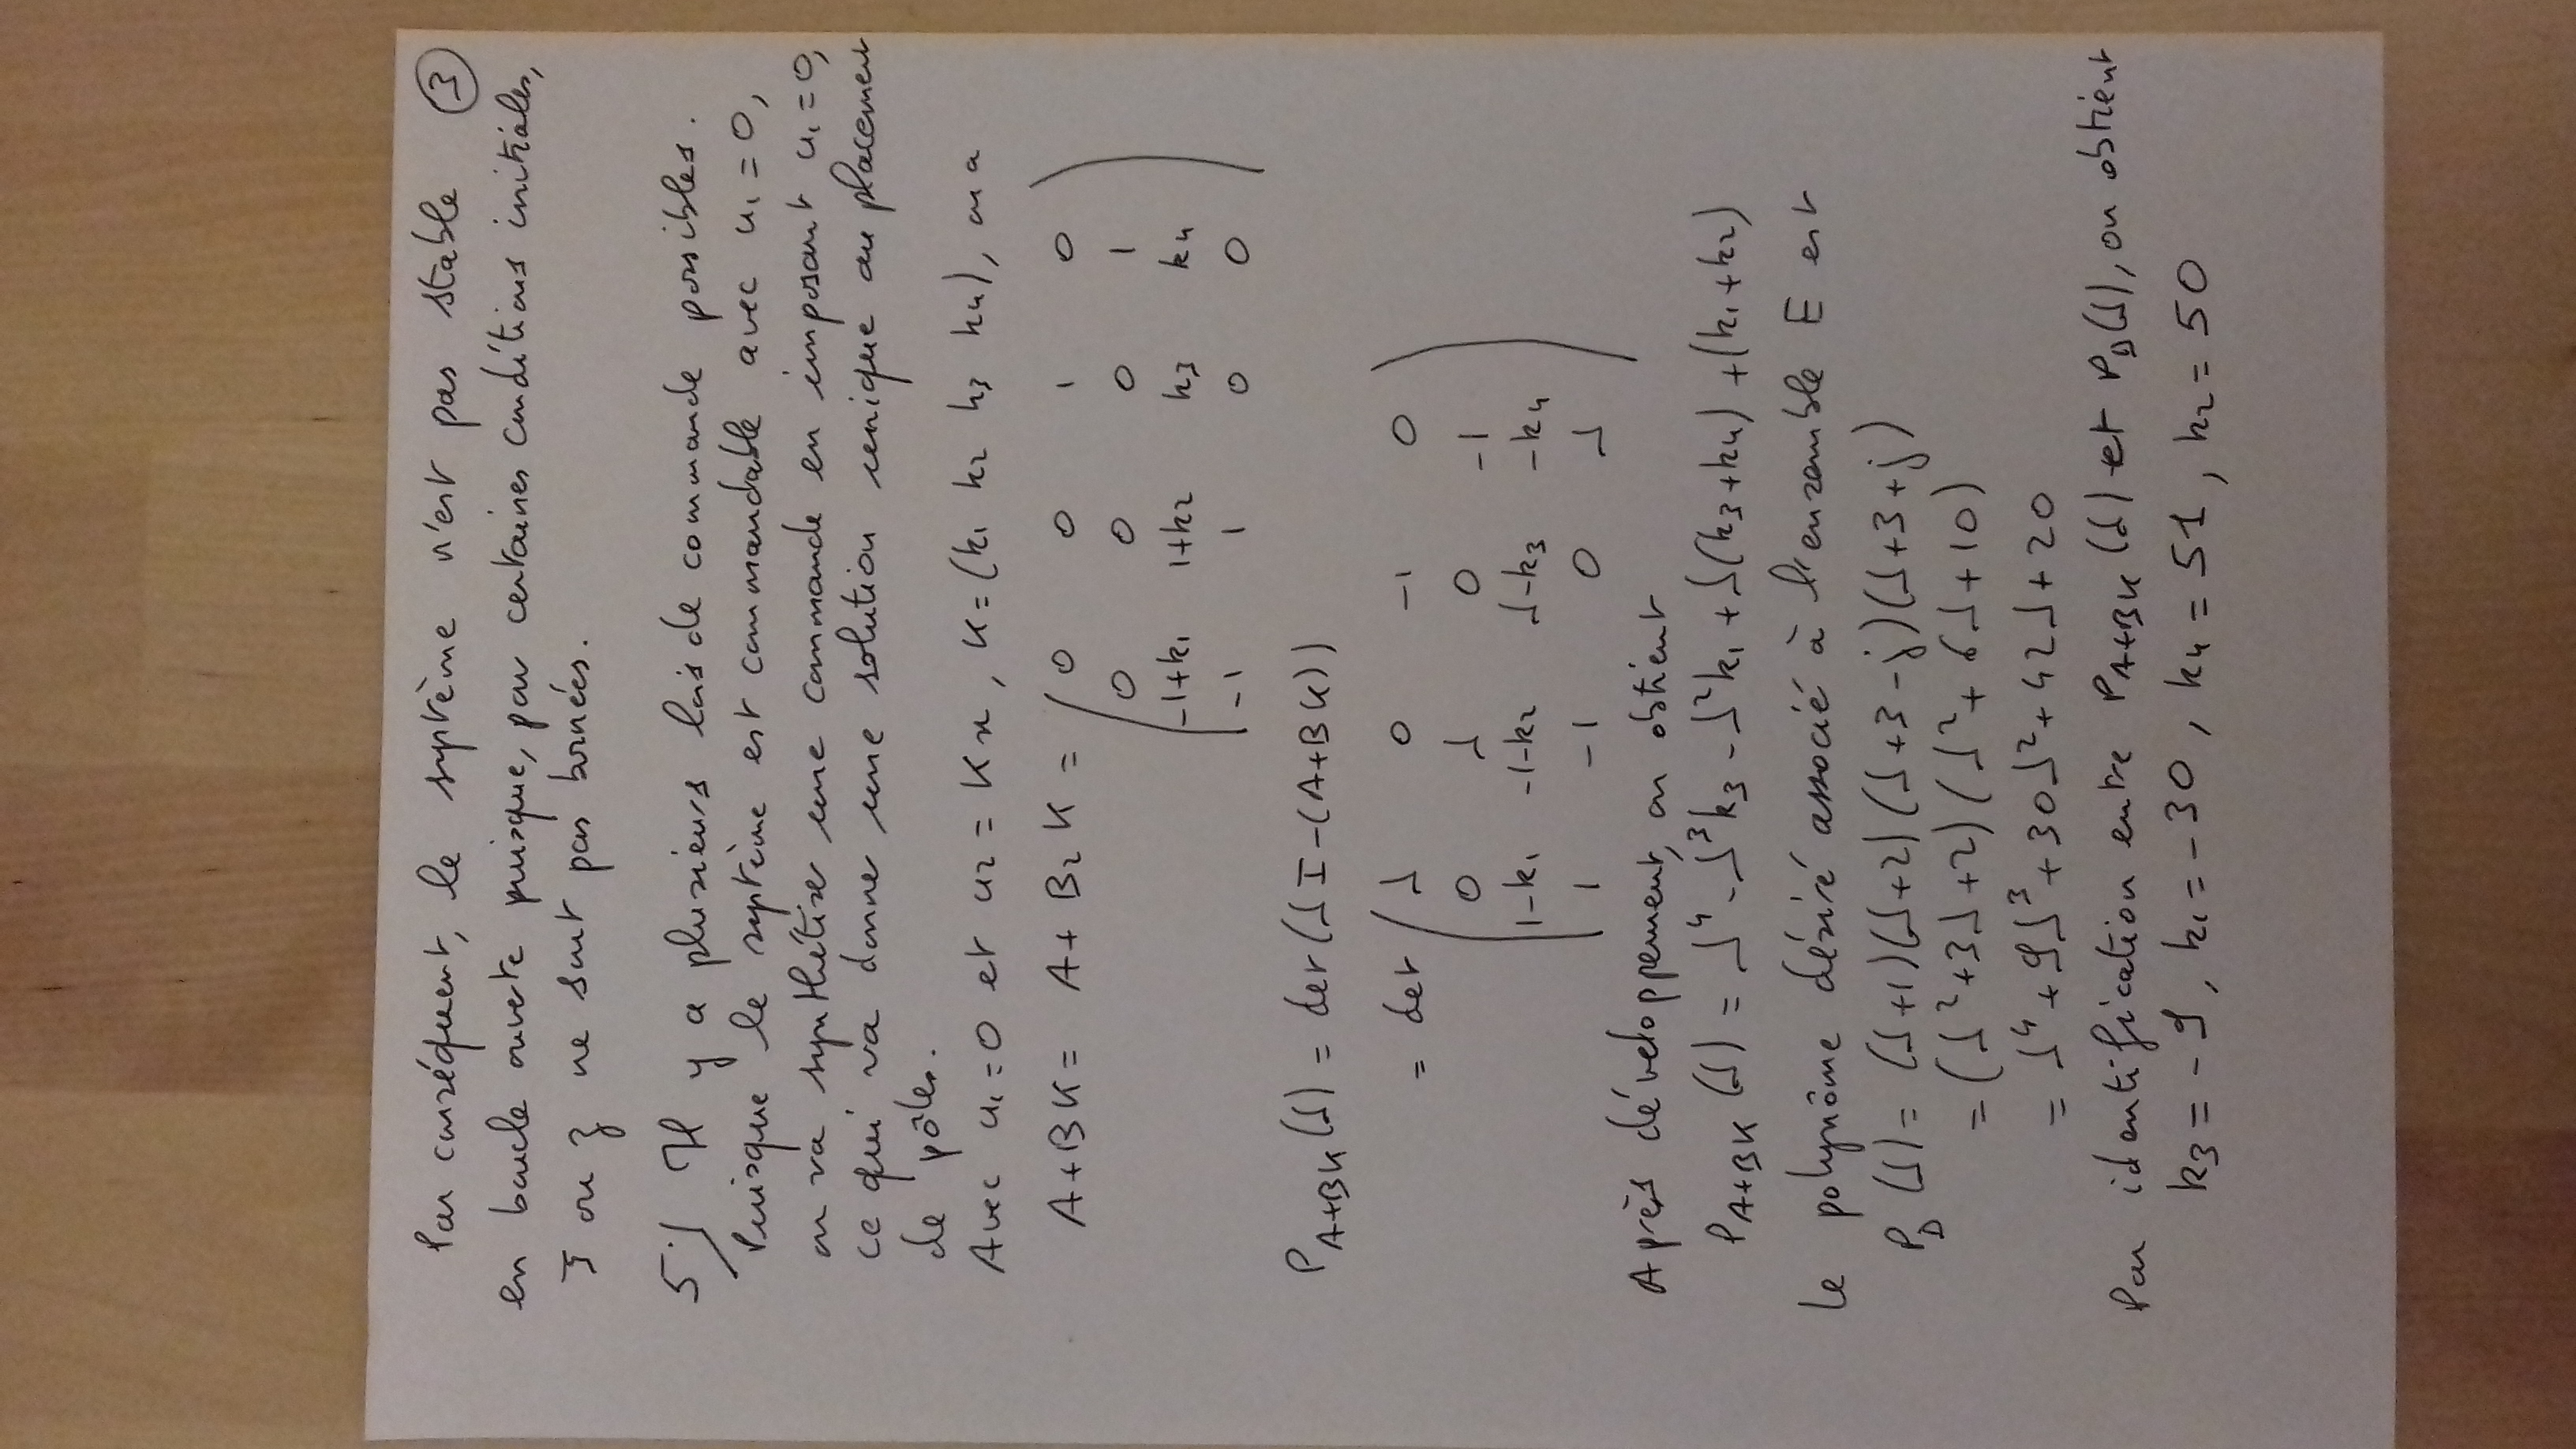 Par conséquent, le système n'est pas stable ③
en boucle ouverte puisque, pour certaines conditions initiales,
ou z ne sont pas bornées.
5°) Il y a plusieurs lois de commande possibles.
Puisque le système est commandable avec u₁ = 0,
on va synthétiser une commande en imposant u₁ = 0,
ce qui va donner une solution unique au placement
de pôles.
Avec u₁ = 0 et u₂ = Kx, K = (k₁ k₂ k₃ k₄), on a
A+BK = A + B₂ K = ( 0 0 1 0
0 0 0 1
-1+k₁ 1+k₂ k₃ k₄
-1 1 0 0 )
P_{A+BK}(s) = det(sI-(A+BK))
= det ( s 0 -1 0
0 s 0 -1
1-k₁ -1-k₂ s-k₃ -k₄
1 -1 0 s )
Après développement, on obtient
P_{A+BK}(s) = s⁴ - s³k₃ - s²k₁ + s(k₃+k₄) + (k₁+k₂)
Le polynôme désiré associé à l'ensemble E est
P_D(s) = (s+1)(s+2)(s+3-j)(s+3+j)
= (s²+3s+2)(s²+6s+10)
= s⁴+9s³+30s²+42s+20
Par identification entre P_{A+BK}(s) et P_D(s), on obtient
k₃ = -9, k₁ = -30, k₄ = 51, k₂ = 50